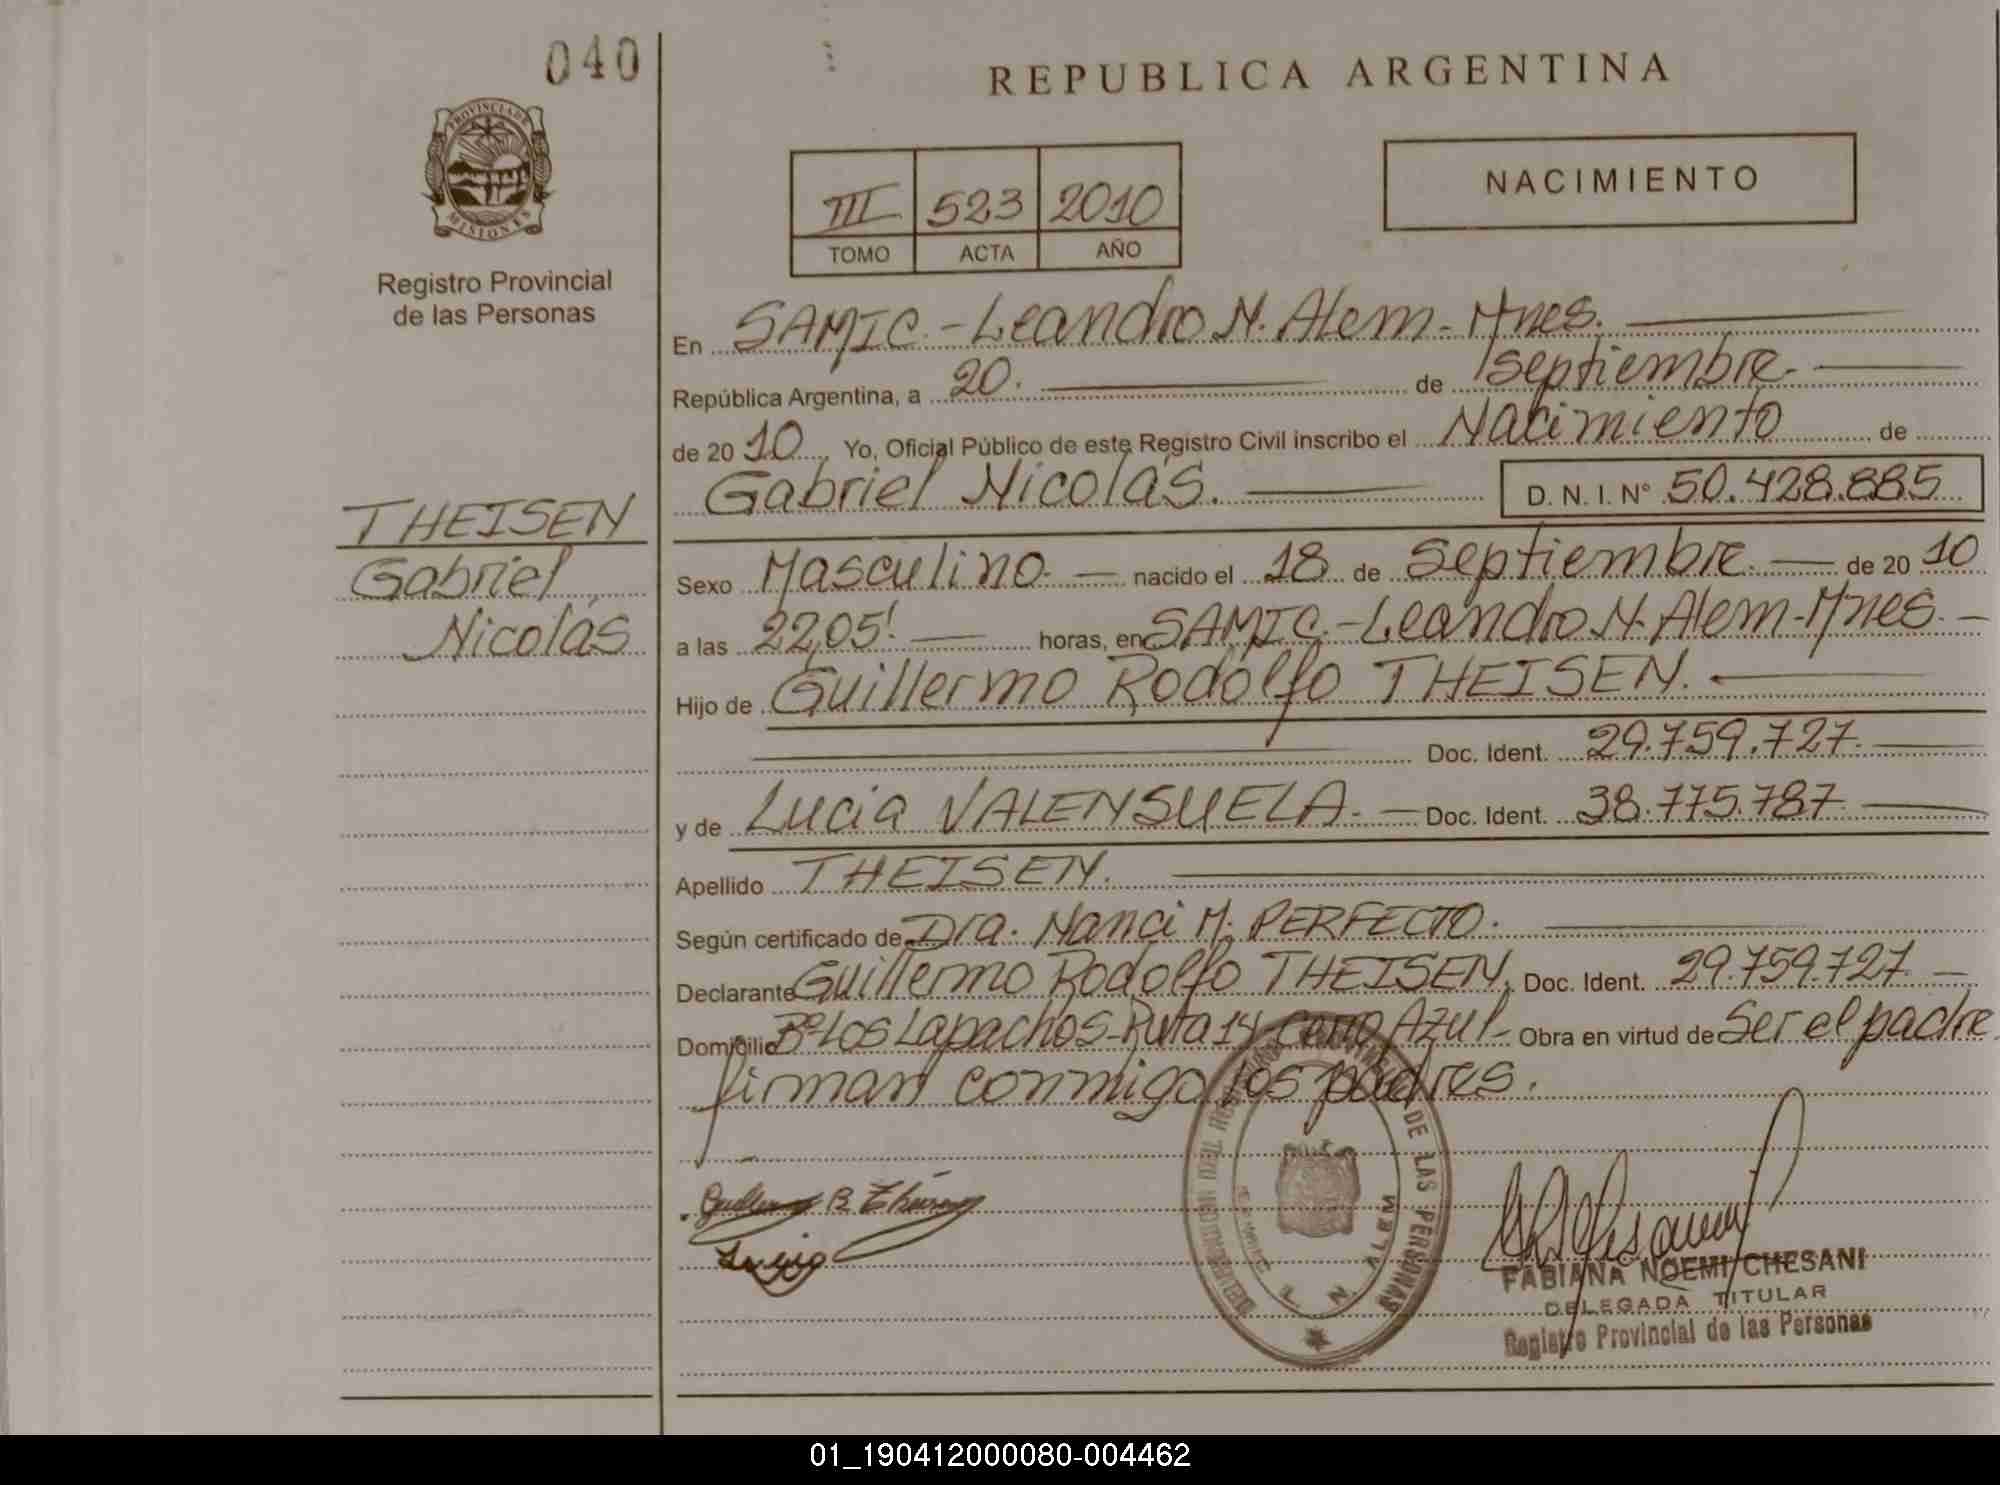 040
REPUBLICA ARGENTINA
PROVINCIA DE MISIONES
Registro Provincial
de las Personas
III 523 2010
TOMO ACTA AÑO
NACIMIENTO
En SAMIC.-Leandro N. Alem-Mnes.
República Argentina, a 20. de septiembre.
de 2010 Yo, Oficial Público de este Registro Civil inscribo el Nacimiento de
Gabriel Nicolás. D. N. I. Nº 50.428.885
THEISEN
Gabriel
Nicolás
Sexo Masculino. nacido el 18 de Septiembre. de 2010
a las 22,05'. horas, en SAMIC.-Leandro N. Alem-Mnes.
Hijo de Guillermo Rodolfo THEISEN.
Doc. Ident. 29.759.727.
y de Lucia VALENSUELA. Doc. Ident. 38.775.787
Apellido THEISEN.
Según certificado de Dra. Nanci M. PERFECTO.
Declarante Guillermo Rodolfo THEISEN. Doc. Ident. 29.759.727.
Domicilio Bº Los Lapachos-Ruta 14 Cerro Azul- Obra en virtud de Ser el padre
firman conmigo los padres.
DE LAS PERSONAS
L. N. ALEM
Lucia
FABIANA NOEMI CHESANI
DELEGADA TITULAR
Registro Provincial de las Personas
01_190412000080-004462